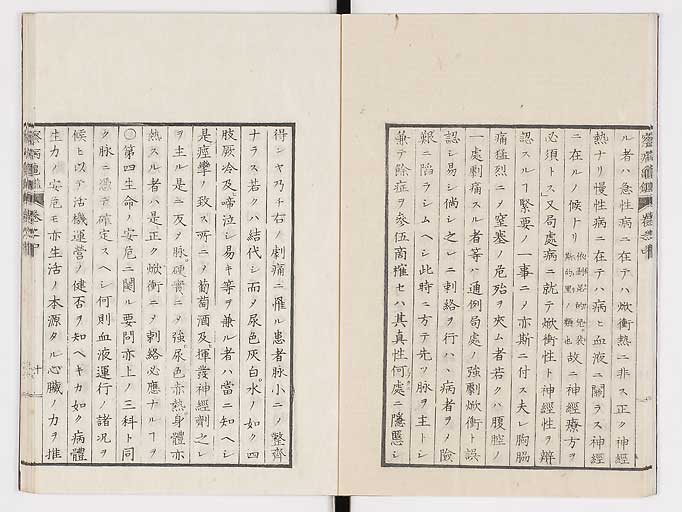 ル者ハ急性病ニ在テハ焮衝熱ニ非ス正ク神經
熱ナリ慢性病ニ在テハ病ヒ血液ニ關ラス神經
ニ在ルノ候トリ 故ニ神經療方ヲ
必須トス又局處病ニ就テ焮衝性ト神經性ヲ辨
認スルヿ緊要ノ一事ニメ亦斯ニ付ス夫レ胸腦
痛猛烈ニメ窒塞ノ危殆ヲ夾ム者若クハ腹腔ノ
一處劇痛スル者等ハ通例局處ノ強劇焮衝ト誤
認シ易シ倘シ之レニ刺絡ヲ行ハヽ病者ヲメ險
艱ニ陷ラシムヘシ此時ニ方テ先ツ脉ヲ主トシ
兼テ除症ヲ參伍商搉セハ其真性何處ニ隱慝シ
得ンヤ乃チ右ノ劇痛ニ罹ル患者脉小ニメ整齊
ナラス若クハ結代シ而メ尿色灰白水ノ如ク四
肢厥冷及啼泣シ易キ等ヲ兼ル者ハ當ニ知ヘシ
是痙攣ノ致ス所ニメ葡萄酒及揮發神經劑之レ
ヲ主ル是ニ反メ脉硬實ニメ強尿色赤熱身體亦
熱スル者ハ是正ク焮衝ニメ刺絡必應ナルヿヲ
第四生命ノ安危ニ關ル要問亦上ノ三科ト同
ク脉ニ憑テ確定スヘシ何則血液運行ノ諸况ヲ
候ヒ以テ活機運營ノ健否ヲ知ヘキカ如ク病體
生力ノ安危モ亦生活ノ本源タル心臟ノ力ヲ推